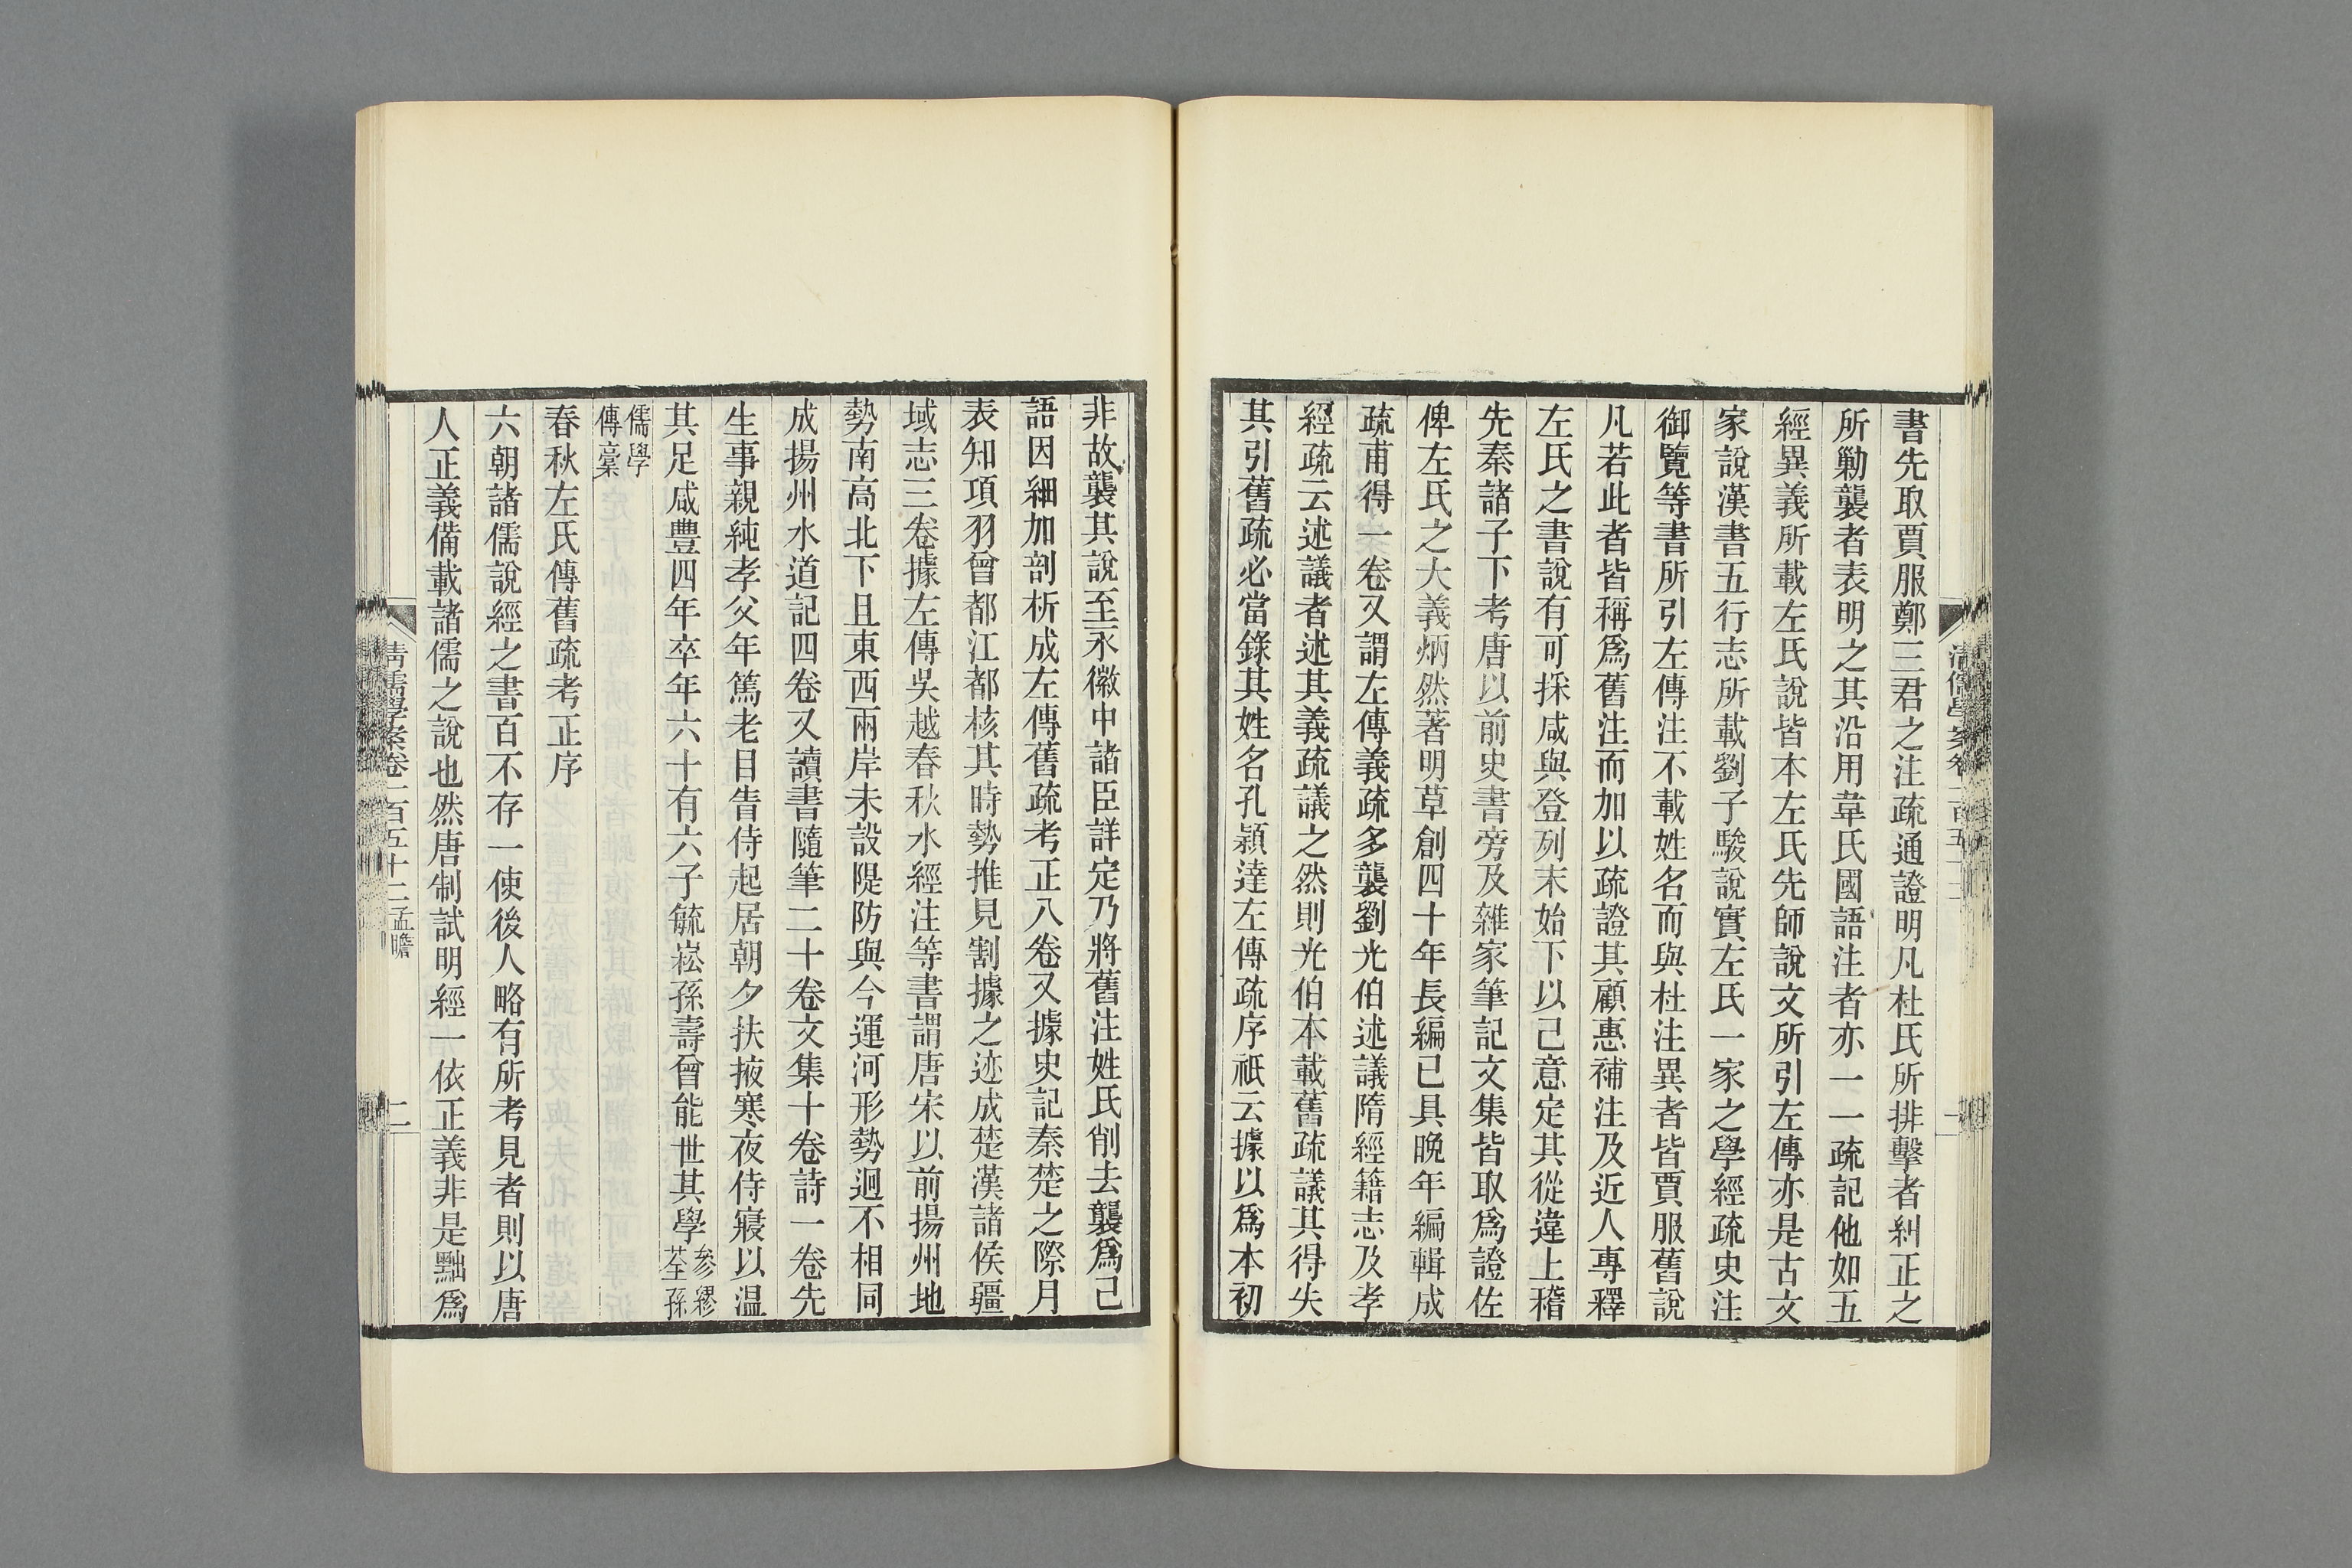 書先取賈服鄭三君之注疏通證明凡杜氏所排擊者糾正之
所勦襲者表明之其沿用韋氏國語注者亦一一疏記他如五
經異義所載左氏說皆本左氏先師說文所引左傳亦是古文
家說漢書五行志所載劉子駿說實左氏一家之學經疏史注
御覽等書所引左傳注不載姓名而與杜注異者皆賈服舊說
凡若此者皆稱爲舊注而加以疏證其顧惠補注及近人專釋
左氏之書說有可採咸與登列末始下以己意定其從違上稽
先秦諸子下考唐以前史書旁及雜家筆記文集皆取爲證佐
俾左氏之大義炳然著明草創四十年長編已具晚年編輯成
疏甫得一卷又謂左傳義疏多襲劉光伯述議隋經籍志及孝
經疏云述議者述其義疏議之然則光伯本載舊疏議其得失
其引舊疏必當錄其姓名孔穎達左傳疏序祇云據以爲本初
非故襲其說至永徽中諸臣詳定乃將舊注姓氏削去襲爲己
語因細加剖析成左傳舊疏考正八卷又據史記秦楚之際月
表知項羽曾都江都核其時勢推見割據之迹成楚漢諸侯疆
域志三卷據左傳吳越春秋水經注等書謂唐宋以前揚州地
勢南高北下且東西兩岸未設隄防與今運河形勢迥不相同
成揚州水道記四卷又讀書隨筆二十卷文集十卷詩一卷先
生事親純孝父年篤老目眚侍起居朝夕扶掖寒夜侍寢以温
其足咸豐四年卒年六十有六子毓崧孫壽曾能世其學參繆荃孫
儒學傳稾
春秋左氏傳舊疏考正序
六朝諸儒說經之書百不存一使後人略有所考見者則以唐
人正義備載諸儒之說也然唐制試明經一依正義非是黜爲
清儒學案卷一百五十二 孟瞻
二